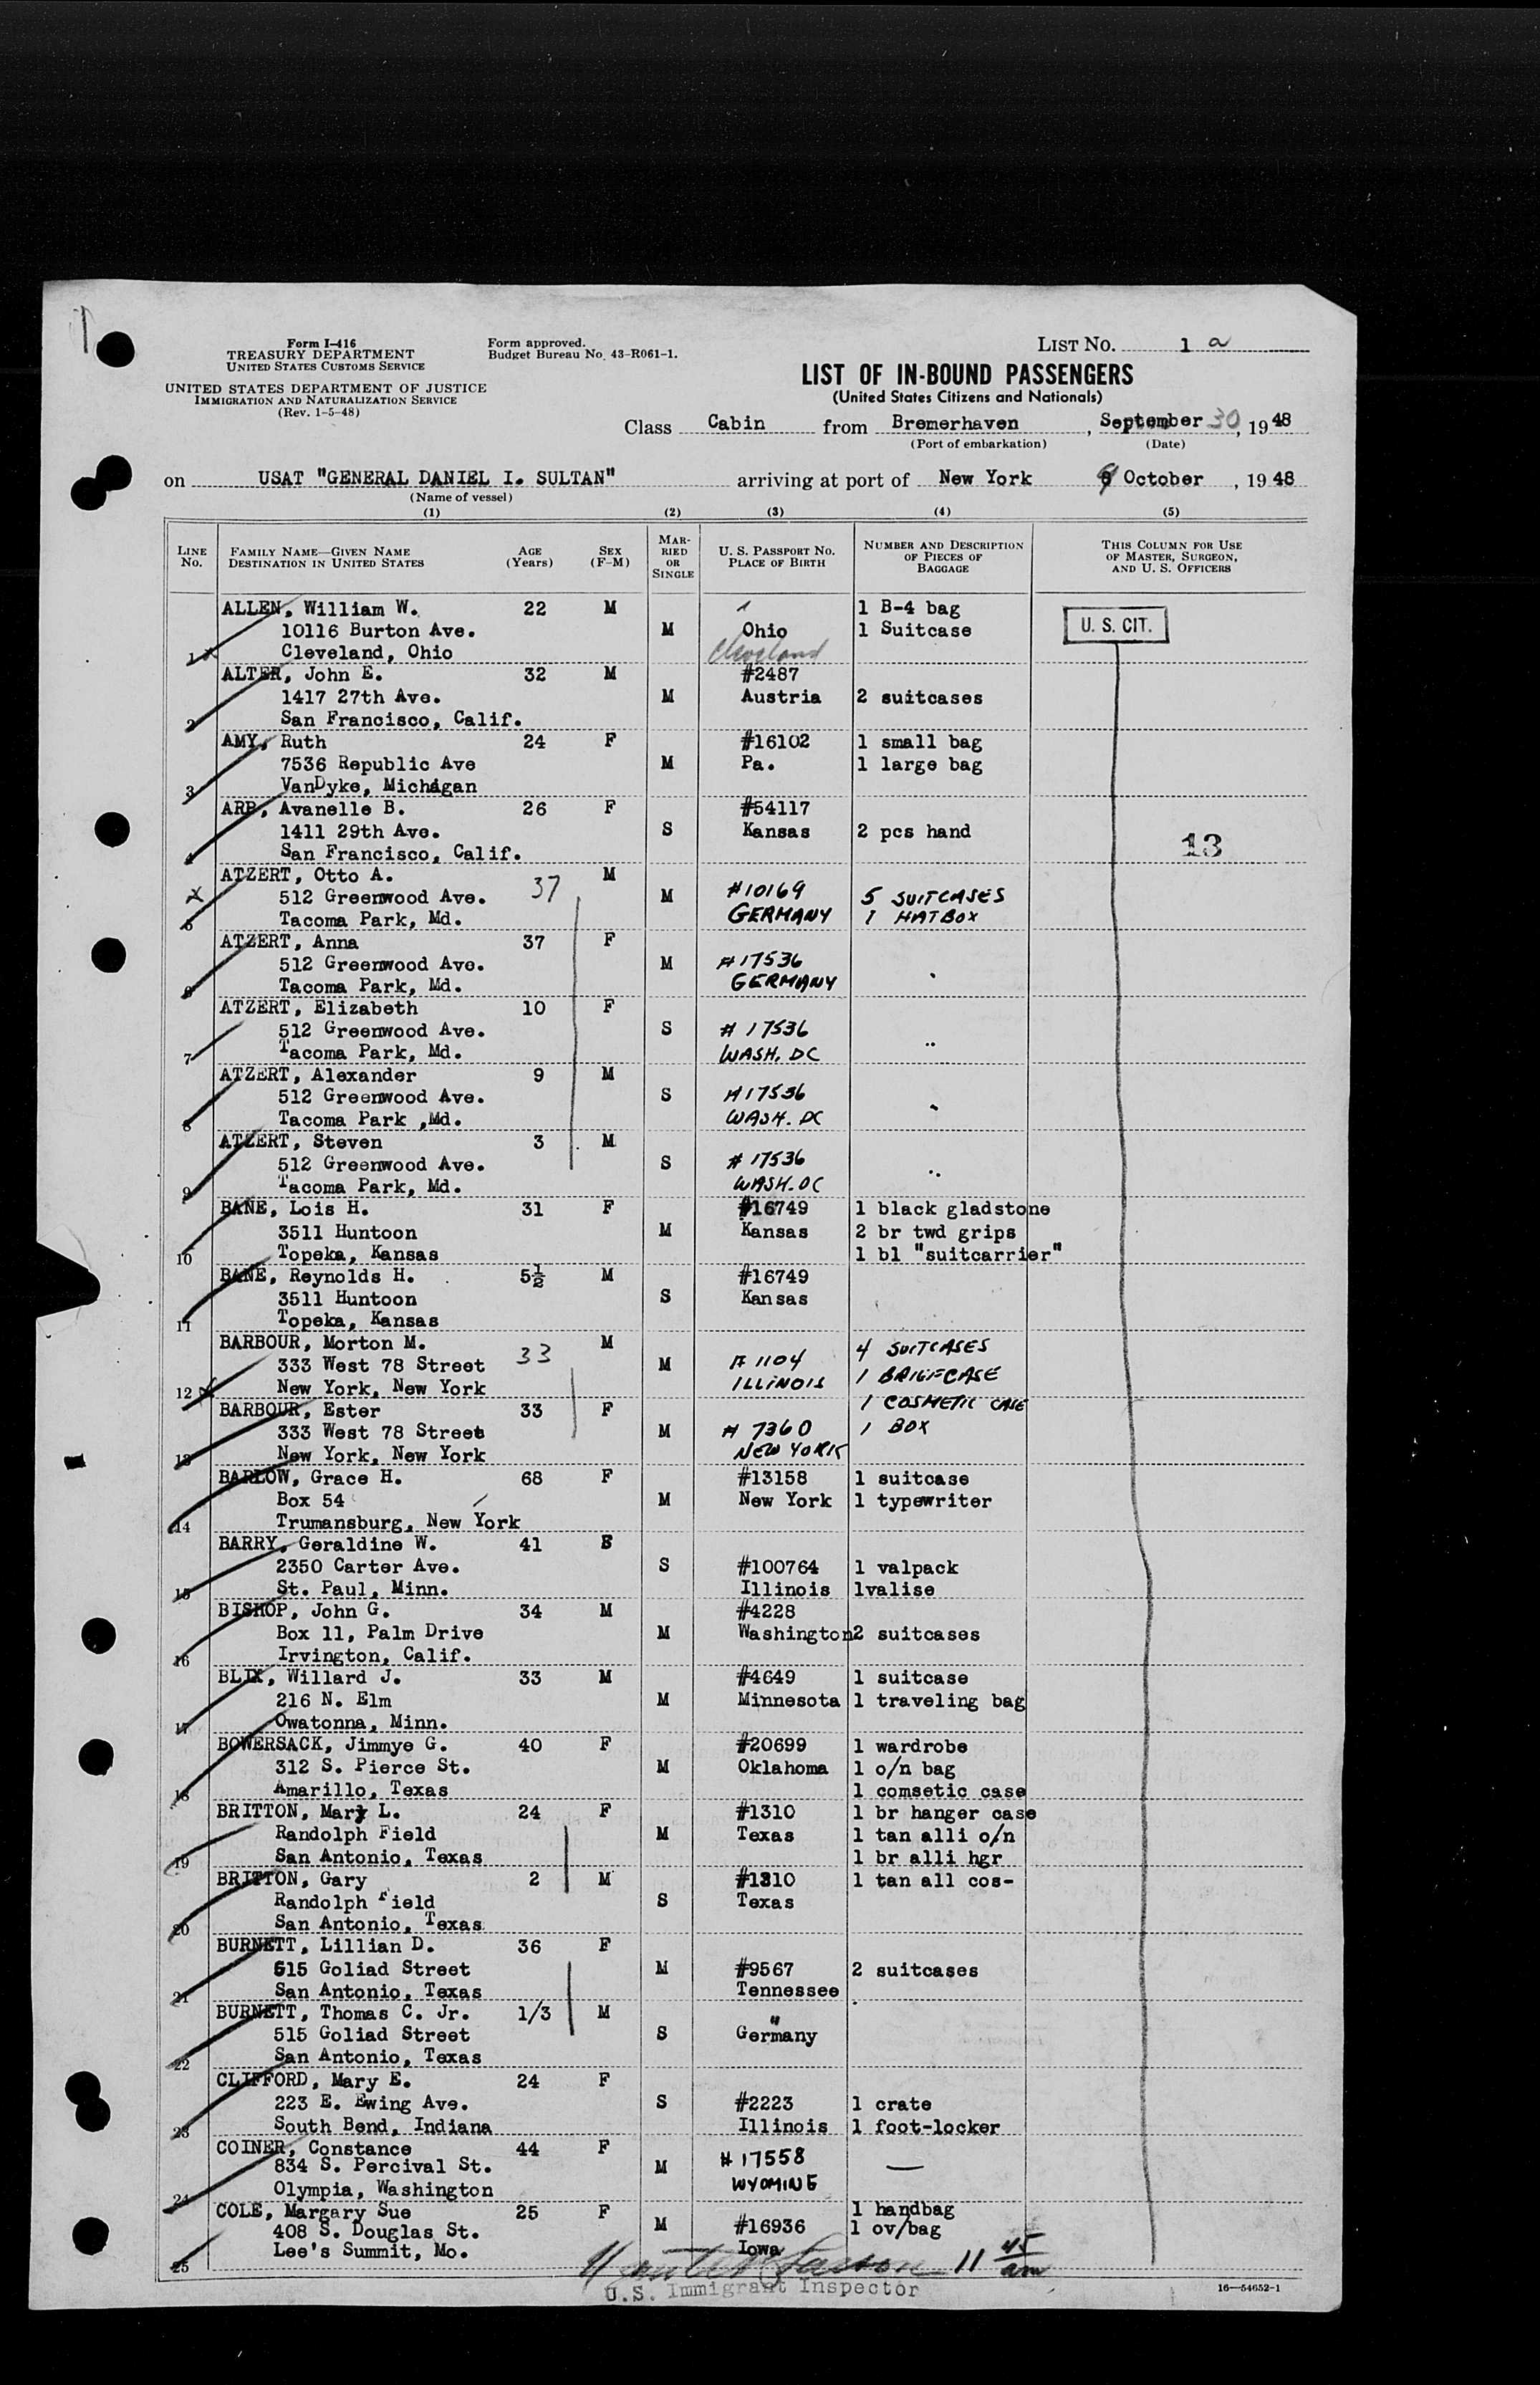 Form I-416
TREASURY DEPARTMENT
UNITED STATES CUSTOMS SERVICE
UNITED STATES DEPARTMENT OF JUSTICE
IMMIGRATION AND NATURALIZATION SERVICE
(Rev. 1-5-48)
Form approved.
Budget Bureau No. 43-R061-1.
LIST NO. 1 a
LIST OF IN-BOUND PASSENGERS
(United States Citizens and Nationals)
Class Cabin from Bremerhaven, September 30, 1948
(Port of embarkation) (Date)
on USAT "GENERAL DANIEL I. SULTAN" arriving at port of New York 9 October, 1948
(Name of vessel)
(1) (2) (3) (4) (5)
LINE NO. FAMILY NAME—GIVEN NAME DESTINATION IN UNITED STATES AGE (Years) SEX (F-M) MARRIED OR SINGLE U. S. PASSPORT NO. PLACE OF BIRTH NUMBER AND DESCRIPTION OF PIECES OF BAGGAGE THIS COLUMN FOR USE OF MASTER, SURGEON, AND U. S. OFFICERS
ALLEN, William W. 22 M 1 B-4 bag
10116 Burton Ave. M Ohio 1 Suitcase U. S. CIT.
1 x Cleveland, Ohio Cleveland
ALTER, John E. 32 M #2487
1417 27th Ave. M Austria 2 suitcases
2 San Francisco, Calif.
AMY, Ruth 24 F #16102 1 small bag
7536 Republic Ave M Pa. 1 large bag
3 VanDyke, Michigan
ARP, Avanelle B. 26 F #54117
1411 29th Ave. S Kansas 2 pcs hand 13
4 San Francisco, Calif.
ATZERT, Otto A. 37 M
x 512 Greenwood Ave. M #10169 5 SUITCASES
5 Tacoma Park, Md. GERMANY 1 HATBOX
ATZERT, Anna 37 F
512 Greenwood Ave. M #17536
6 Tacoma Park, Md. GERMANY "
ATZERT, Elizabeth 10 F
512 Greenwood Ave. S #17536
7 Tacoma Park, Md. WASH. DC "
ATZERT, Alexander 9 M
512 Greenwood Ave. S #17536
8 Tacoma Park ,Md. WASH. DC "
ATZERT, Steven 3 M
512 Greenwood Ave. S #17536
9 Tacoma Park, Md. WASH. DC "
BANE, Lois H. 31 F #16749 1 black gladstone
3511 Huntoon M Kansas 2 br twd grips
10 Topeka, Kansas 1 bl "suitcarrier"
BANE, Reynolds H. 5½ M #16749
3511 Huntoon S Kansas
11 Topeka, Kansas
BARBOUR, Morton M. 33 M 4 SUITCASES
333 West 78 Street M # 1104 1 BRIEFCASE
12 x New York, New York ILLINOIS 1 COSMETIC CASE
BARBOUR, Ester 33 F 1 BOX
333 West 78 Street M # 7360
13 New York, New York NEW YORK
BARLOW, Grace H. 68 F #13158 1 suitcase
Box 54 M New York 1 typewriter
14 Trumansburg, New York
BARRY, Geraldine W. 41 F
2350 Carter Ave. S #100764 1 valpack
15 St. Paul, Minn. Illinois 1valise
BISHOP, John G. 34 M #4228
Box 11, Palm Drive M Washington 2 suitcases
16 Irvington, Calif.
BLIX, Willard J. 33 M #4649 1 suitcase
216 N. Elm M Minnesota 1 traveling bag
17 Owatonna, Minn.
BOWERSACK, Jimmye G. 40 F #20699 1 wardrobe
312 S. Pierce St. M Oklahoma 1 o/n bag
18 Amarillo, Texas 1 comsetic case
BRITTON, Mary L. 24 F #1310 1 br hanger case
Randolph Field M Texas 1 tan alli o/n
19 San Antonio, Texas 1 br alli hgr
BRITTON, Gary 2 M #1310 1 tan all cos-
Randolph Field S Texas
20 San Antonio, Texas
BURNETT, Lillian D. 36 F
515 Goliad Street M #9567 2 suitcases
21 San Antonio, Texas Tennessee
BURNETT, Thomas C. Jr. 1/3 M "
515 Goliad Street S Germany
22 San Antonio, Texas
CLIFFORD, Mary E. 24 F
223 E. Ewing Ave. S #2223 1 crate
23 South Bend, Indiana Illinois 1 foot-locker
COINER, Constance 44 F #17558
834 S. Percival St. M WYOMING —
24 Olympia, Washington
COLE, Margary Sue 25 F 1 handbag
408 S. Douglas St. M #16936 1 ov/bag
25 Lee's Summit, Mo. Iowa
Larson 11 45 am
U.S. Immigrant Inspector
16—54652-1